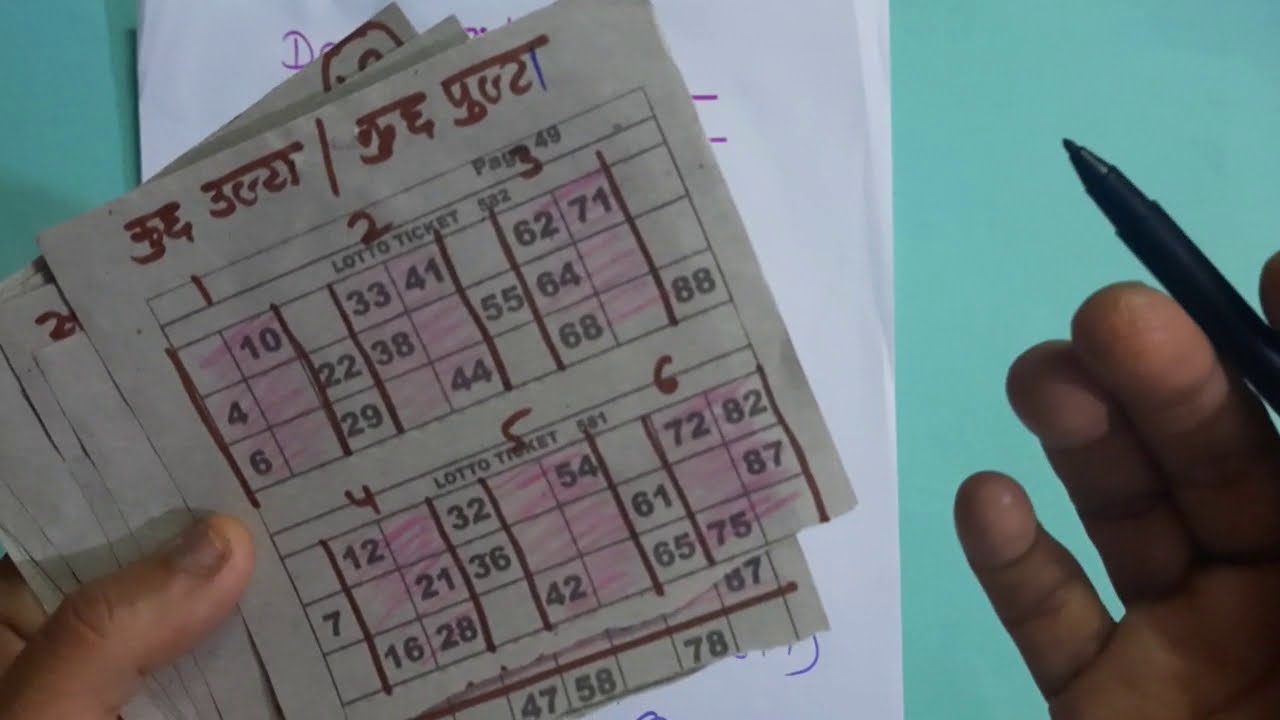 कुछ उल्टा | कुछ पुल्टा
Page 49
1 2 3
LOTTO TICKET 582
10 33 41 62 71
4 22 38 55 64
6 29 44 68 88
4 5 6
LOTTO TICKET 581
12 32 54 72 82
7 21 36 61 87
16 28 42 65 75
67
47 58 78